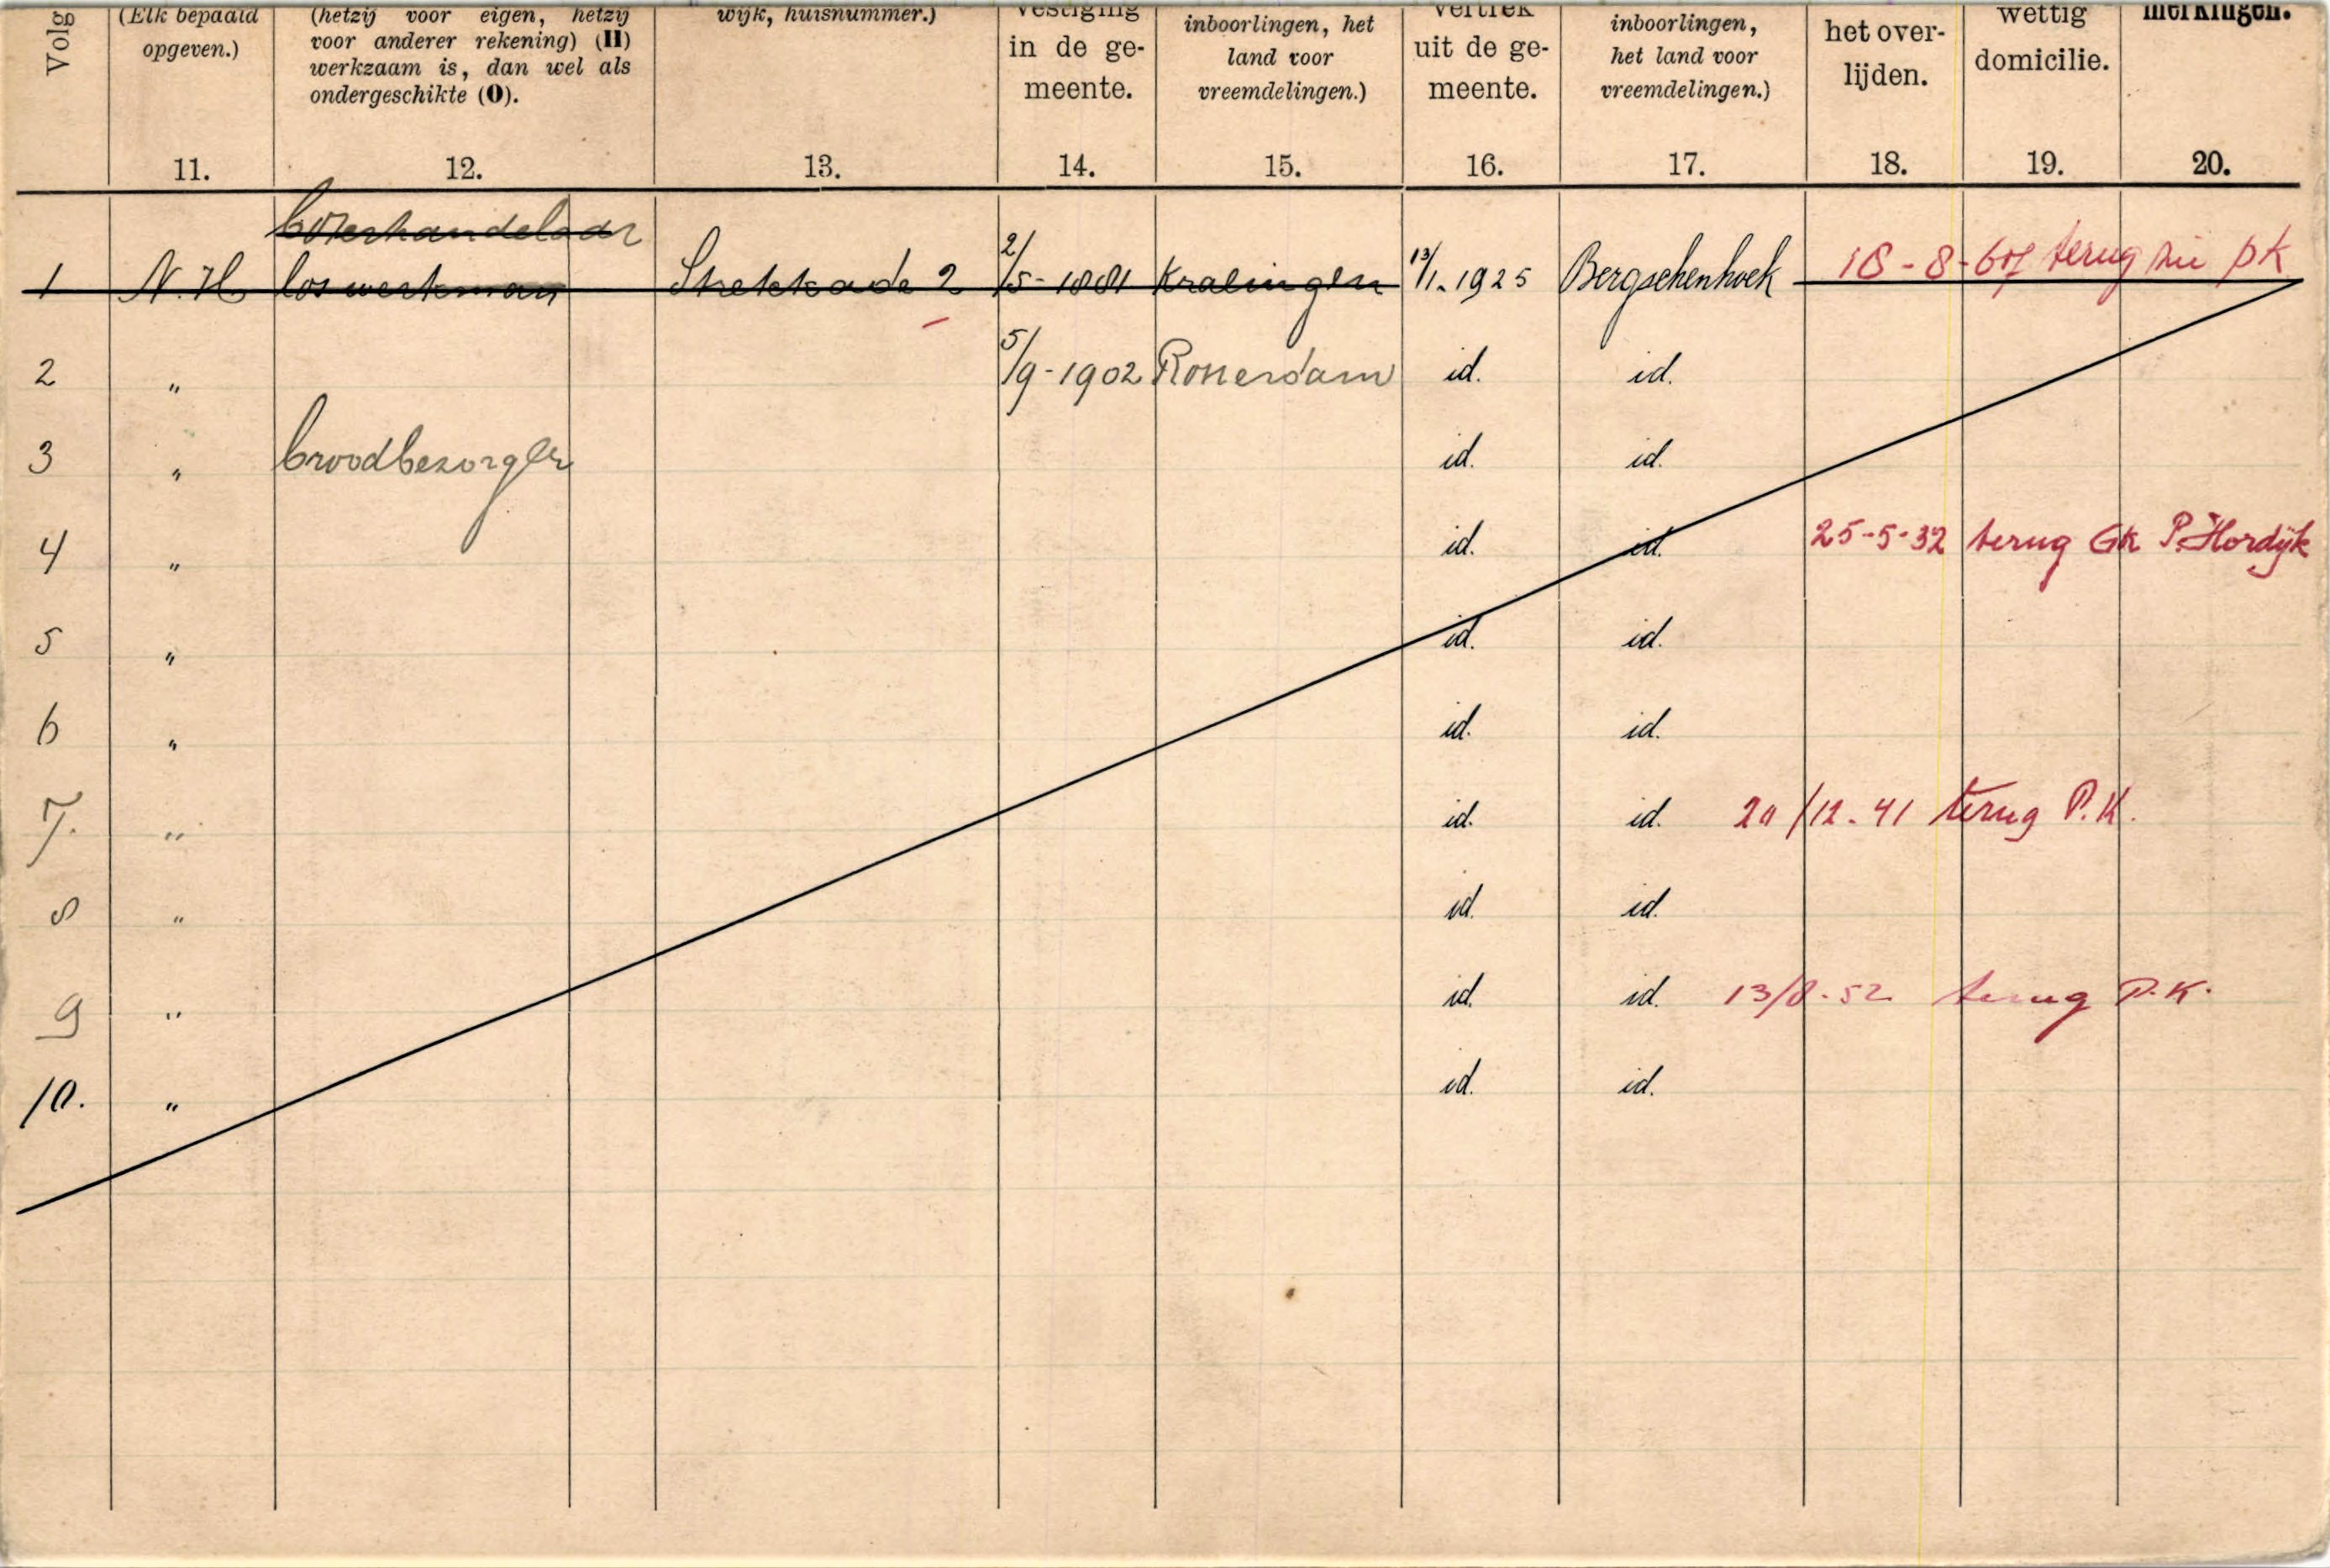 Volg (Elk bepaald (hetzij voor eigen, hetzij wijk, huisnummer.) vestiging inboorlingen, het vertrek inboorlingen, het over- wettig merkingen.
opgeven.) voor anderer rekening) (H) in de ge- land voor uit de ge- het land voor lijden. domicilie.
werkzaam is, dan wel als meente. vreemdelingen.) meente. vreemdelingen.)
ondergeschikte (O).
11. 12. 13. 14. 15. 16. 17. 18. 19. 20.
1 N.H. los werkman Strekkade 2 2/5-1881 Kralingen 13/1.1925 Bergschenhoek 18-8- terug pk
2 " 5/9-1902 Rotterdam id. id.
3 " broodbezorger id. id.
4 " id. id. 25-5-32 terug Gk P. Hordijk
5 " id. id.
6 " id. id.
7. " id. id. /12-41 terug P.K.
8 " id. id.
9 " id. id. 13/8-52 terug P.K.
10. " id. id.